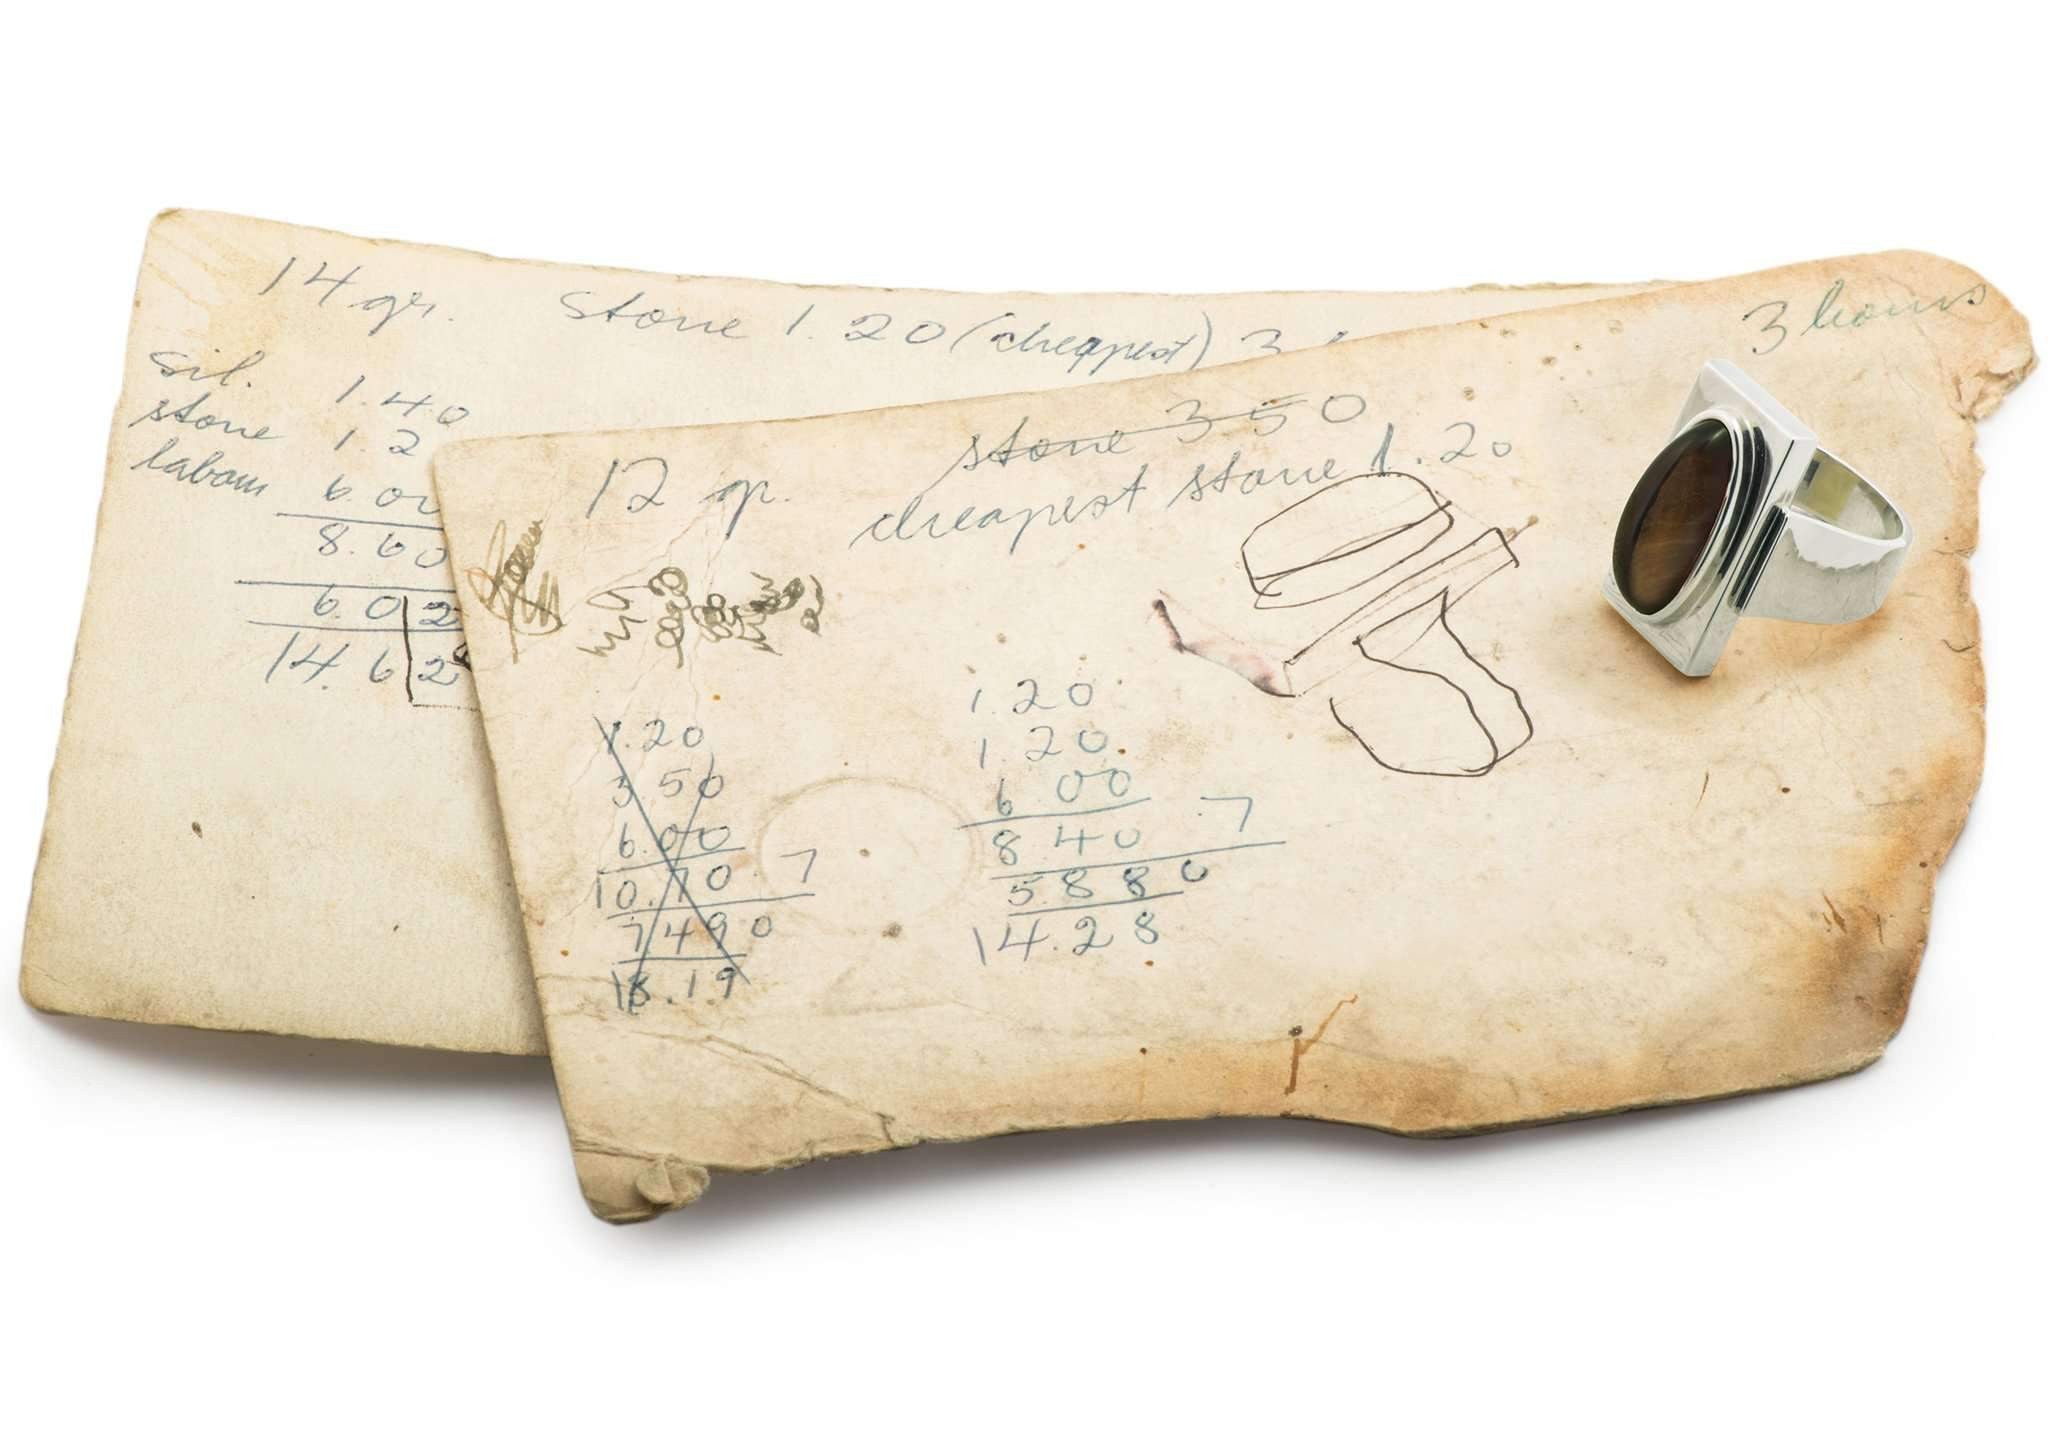 14 gr. stone 1.20 (cheapest) 3
sil. 1.40
stone 1.2
labour 6.00
8.60
6.02
14.62
3 hours
stone 350
12 gr. cheapest stone 1.20
1.20
3 50
6.00
10.70 .7
7490
18.19
1.20
1.20
6 00
8 40 .7
5880
14.28